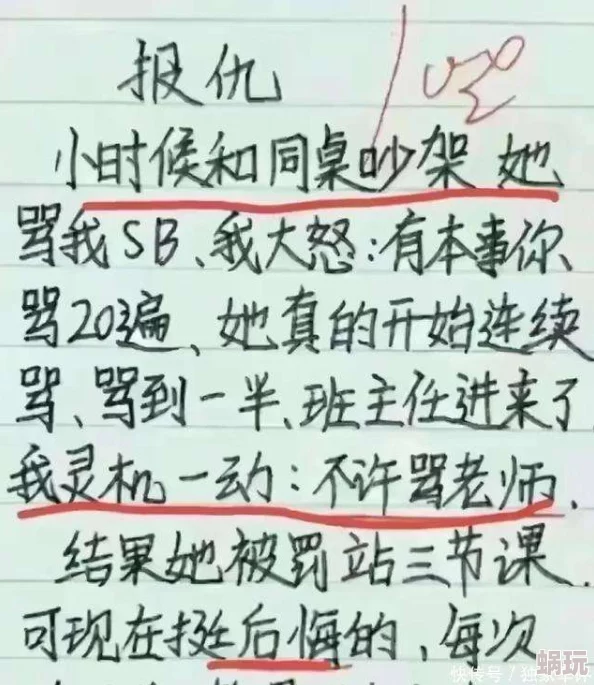 报仇 100
小时候和同桌吵架她
骂我SB、我大怒:有本事你、
骂20遍、她真的开始连续
骂、骂到一半、班主任进来了
我灵机一动:不许骂老师.
结果她被罚站三节课.
可现在挺后悔的,每次
快传号/
蜗玩